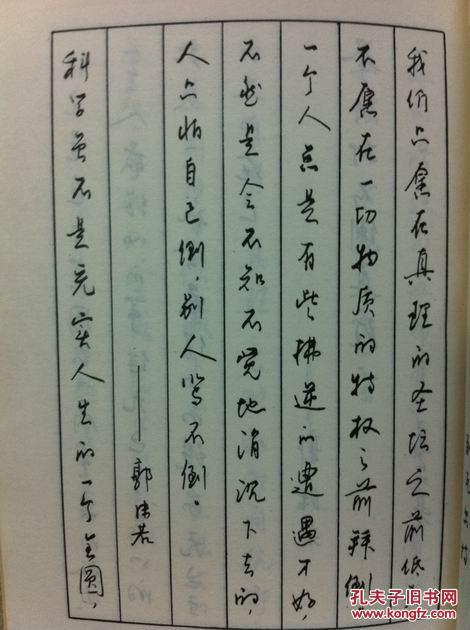 我们只愿在真理的圣坛之前低
不愿在一切物质的特权之前拜倒。
一个人总是有些拂逆的遭遇才好，
不然是会不知不觉地消沉下去的，
人只怕自己倒，别人骂不倒。
——郭沫若
科学虽不是充实人生的一个全圆，
孔夫子旧书网
kongfz.com